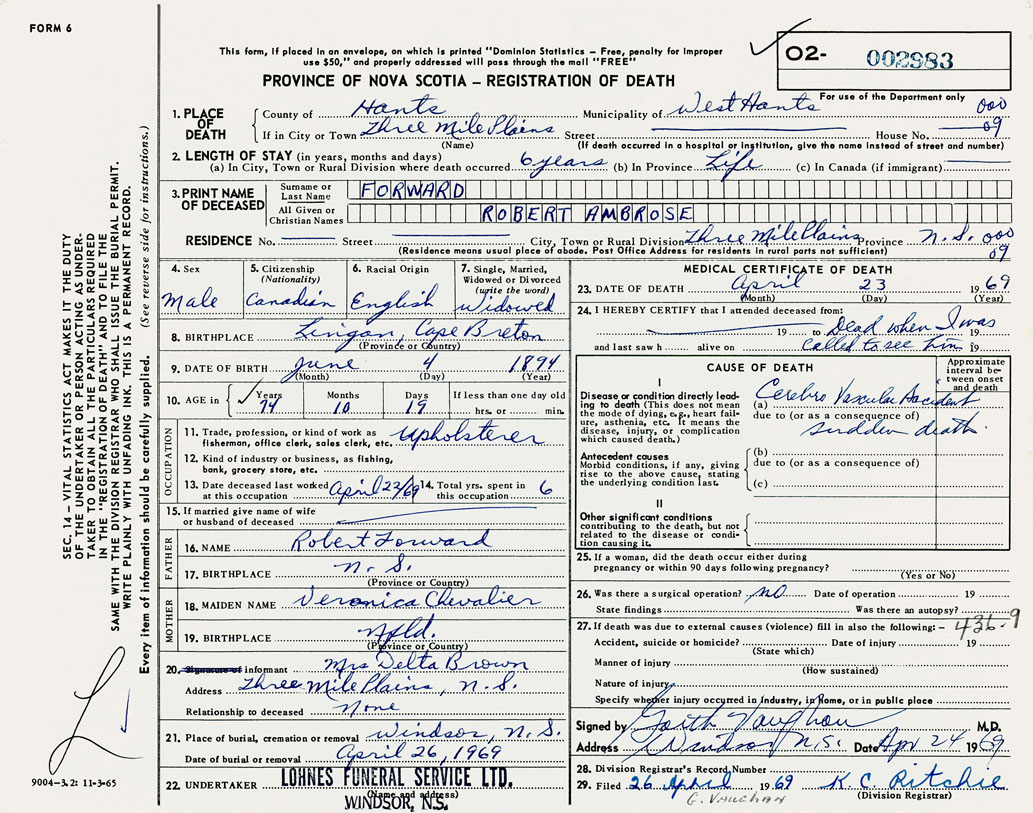 FORM 6
This form, if placed in an envelope, on which is printed "Dominion Statistics – Free, penalty for improper
use $50," and properly addressed will pass through the mail "FREE"
PROVINCE OF NOVA SCOTIA – REGISTRATION OF DEATH
O2- 002983
For use of the Department only
1. PLACE OF DEATH
County of Hants Municipality of West Hants 000
If in City or Town Three Mile Plains Street House No. 09
(Name) (If death occurred in a hospital or institution, give the name instead of street and number)
2. LENGTH OF STAY (in years, months and days)
(a) In City, Town or Rural Division where death occurred 6 years (b) In Province Life (c) In Canada (if immigrant)
3. PRINT NAME OF DECEASED
Surname or Last Name FORWARD
All Given or Christian Names ROBERT AMBROSE
RESIDENCE No. Street City, Town or Rural Division Three Mile Plains Province N.S. 000
(Residence means usual place of abode. Post Office Address for residents in rural parts not sufficient) 09
4. Sex
Male
5. Citizenship (Nationality)
Canadian
6. Racial Origin
English
7. Single, Married, Widowed or Divorced (write the word)
Widowed
8. BIRTHPLACE Lingan, Cape Breton
(Province or Country)
9. DATE OF BIRTH June 4 1894
(Month) (Day) (Year)
10. AGE in Years Months Days If less than one day old
74 10 19 hrs. or min.
OCCUPATION
11. Trade, profession, or kind of work as Upholsterer
fisherman, office clerk, sales clerk, etc.
12. Kind of industry or business, as fishing,
bank, grocery store, etc.
13. Date deceased last worked at this occupation April 22/69 14. Total yrs. spent in this occupation 6
15. If married give name of wife
or husband of deceased
FATHER
16. NAME Robert Forward
17. BIRTHPLACE N.S.
(Province or Country)
MOTHER
18. MAIDEN NAME Veronica Chevalier
19. BIRTHPLACE Nfld.
(Province or Country)
20. Signature of informant Mrs Delta Brown
Address Three Mile Plains, N.S.
Relationship to deceased None
21. Place of burial, cremation or removal Windsor, N.S.
Date of burial or removal April 26, 1969
22. UNDERTAKER LOHNES FUNERAL SERVICE LTD.
(Name and address)
WINDSOR, N.S.
MEDICAL CERTIFICATE OF DEATH
23. DATE OF DEATH April 23 1969
(Month) (Day) (Year)
24. I HEREBY CERTIFY that I attended deceased from:
19 to Dead when I was
and last saw h alive on called to see him 19
CAUSE OF DEATH
Approximate interval between onset and death
I
Disease or condition directly leading to death (This does not mean the mode of dying, e.g., heart failure, asthenia, etc. It means the disease, injury, or complication which caused death.)
(a) Cerebro Vascular Accident
due to (or as a consequence of)
sudden death.
Antecedent causes
Morbid conditions, if any, giving rise to the above cause, stating the underlying condition last.
(b)
due to (or as a consequence of)
(c)
II
Other significant conditions
contributing to the death, but not related to the disease or condition causing it.
25. If a woman, did the death occur either during
pregnancy or within 90 days following pregnancy?
(Yes or No)
26. Was there a surgical operation? no Date of operation 19
State findings Was there an autopsy?
27. If death was due to external causes (violence) fill in also the following: – 436-9
Accident, suicide or homicide? Date of injury 19
(State which)
Manner of injury
(How sustained)
Nature of injury
Specify whether injury occurred in industry, in home, or in public place
Signed by Garth Vaughan M.D.
Address Windsor N.S. Date Apr 24 1969
28. Division Registrar's Record Number
29. Filed 26 April 1969 K. C. Ritchie
G. VAUGHAN (Division Registrar)
SEC. 14 – VITAL STATISTICS ACT MAKES IT THE DUTY
OF THE UNDERTAKER OR PERSON ACTING AS UNDER-
TAKER TO OBTAIN ALL THE PARTICULARS REQUIRED
IN THE "REGISTRATION OF DEATH" AND TO FILE THE
SAME WITH THE DIVISION REGISTRAR WHO SHALL ISSUE THE BURIAL PERMIT.
WRITE PLAINLY WITH UNFADING INK. THIS IS A PERMANENT RECORD.
Every item of information should be carefully supplied. (See reverse side for instructions.)
9004–3.2: 11-3-65